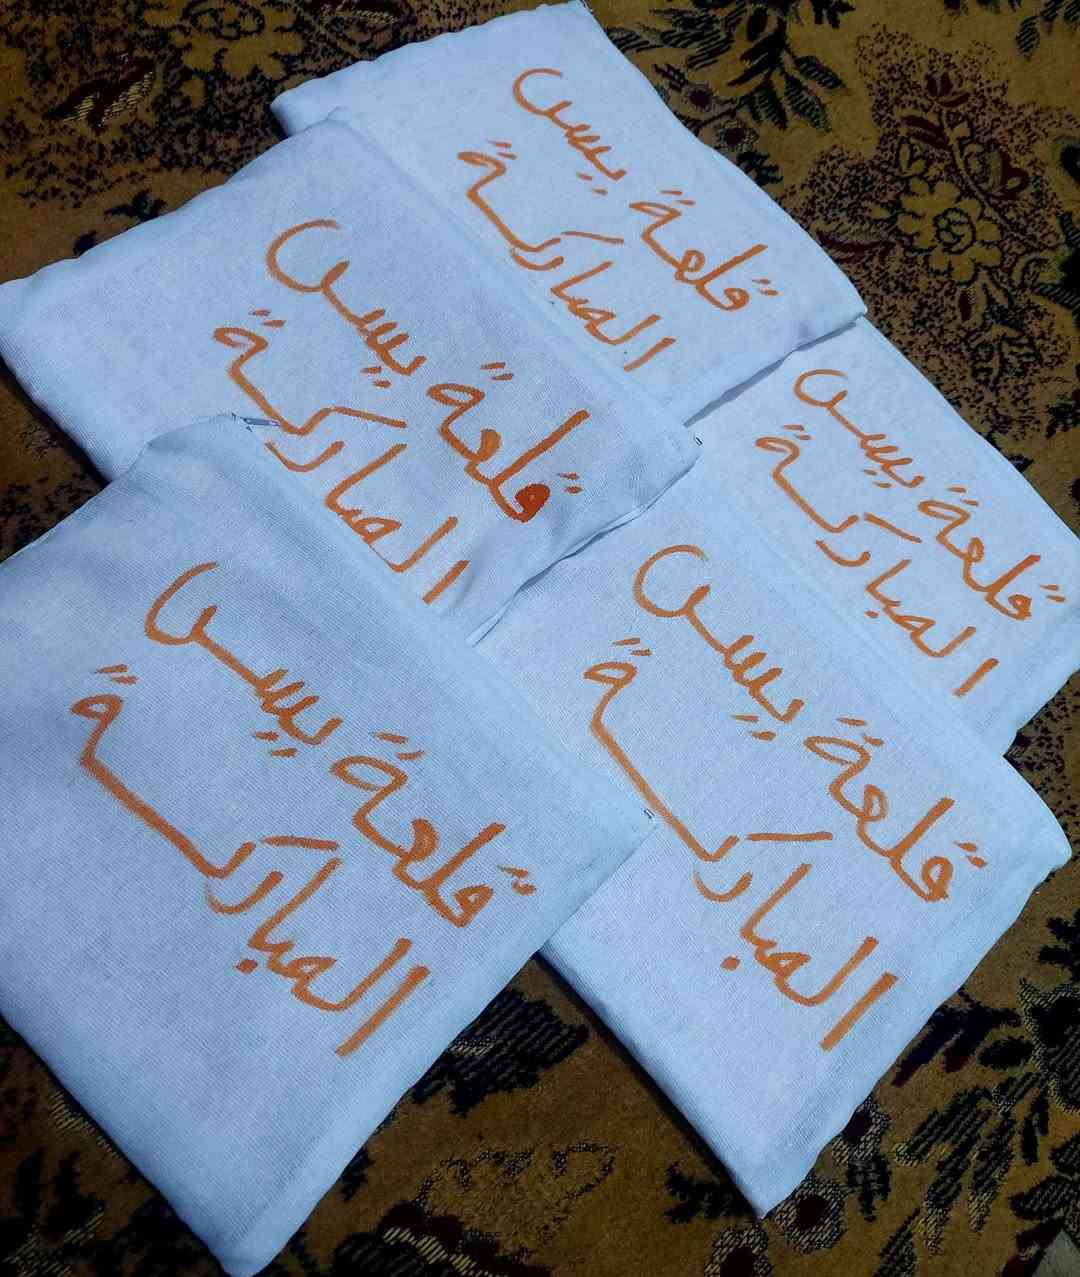 قلعة يس
المباركة
قلعة يس
المباركة
قلعة يس
المباركة
قلعة يس
المباركة
قلعة يس
المباركة